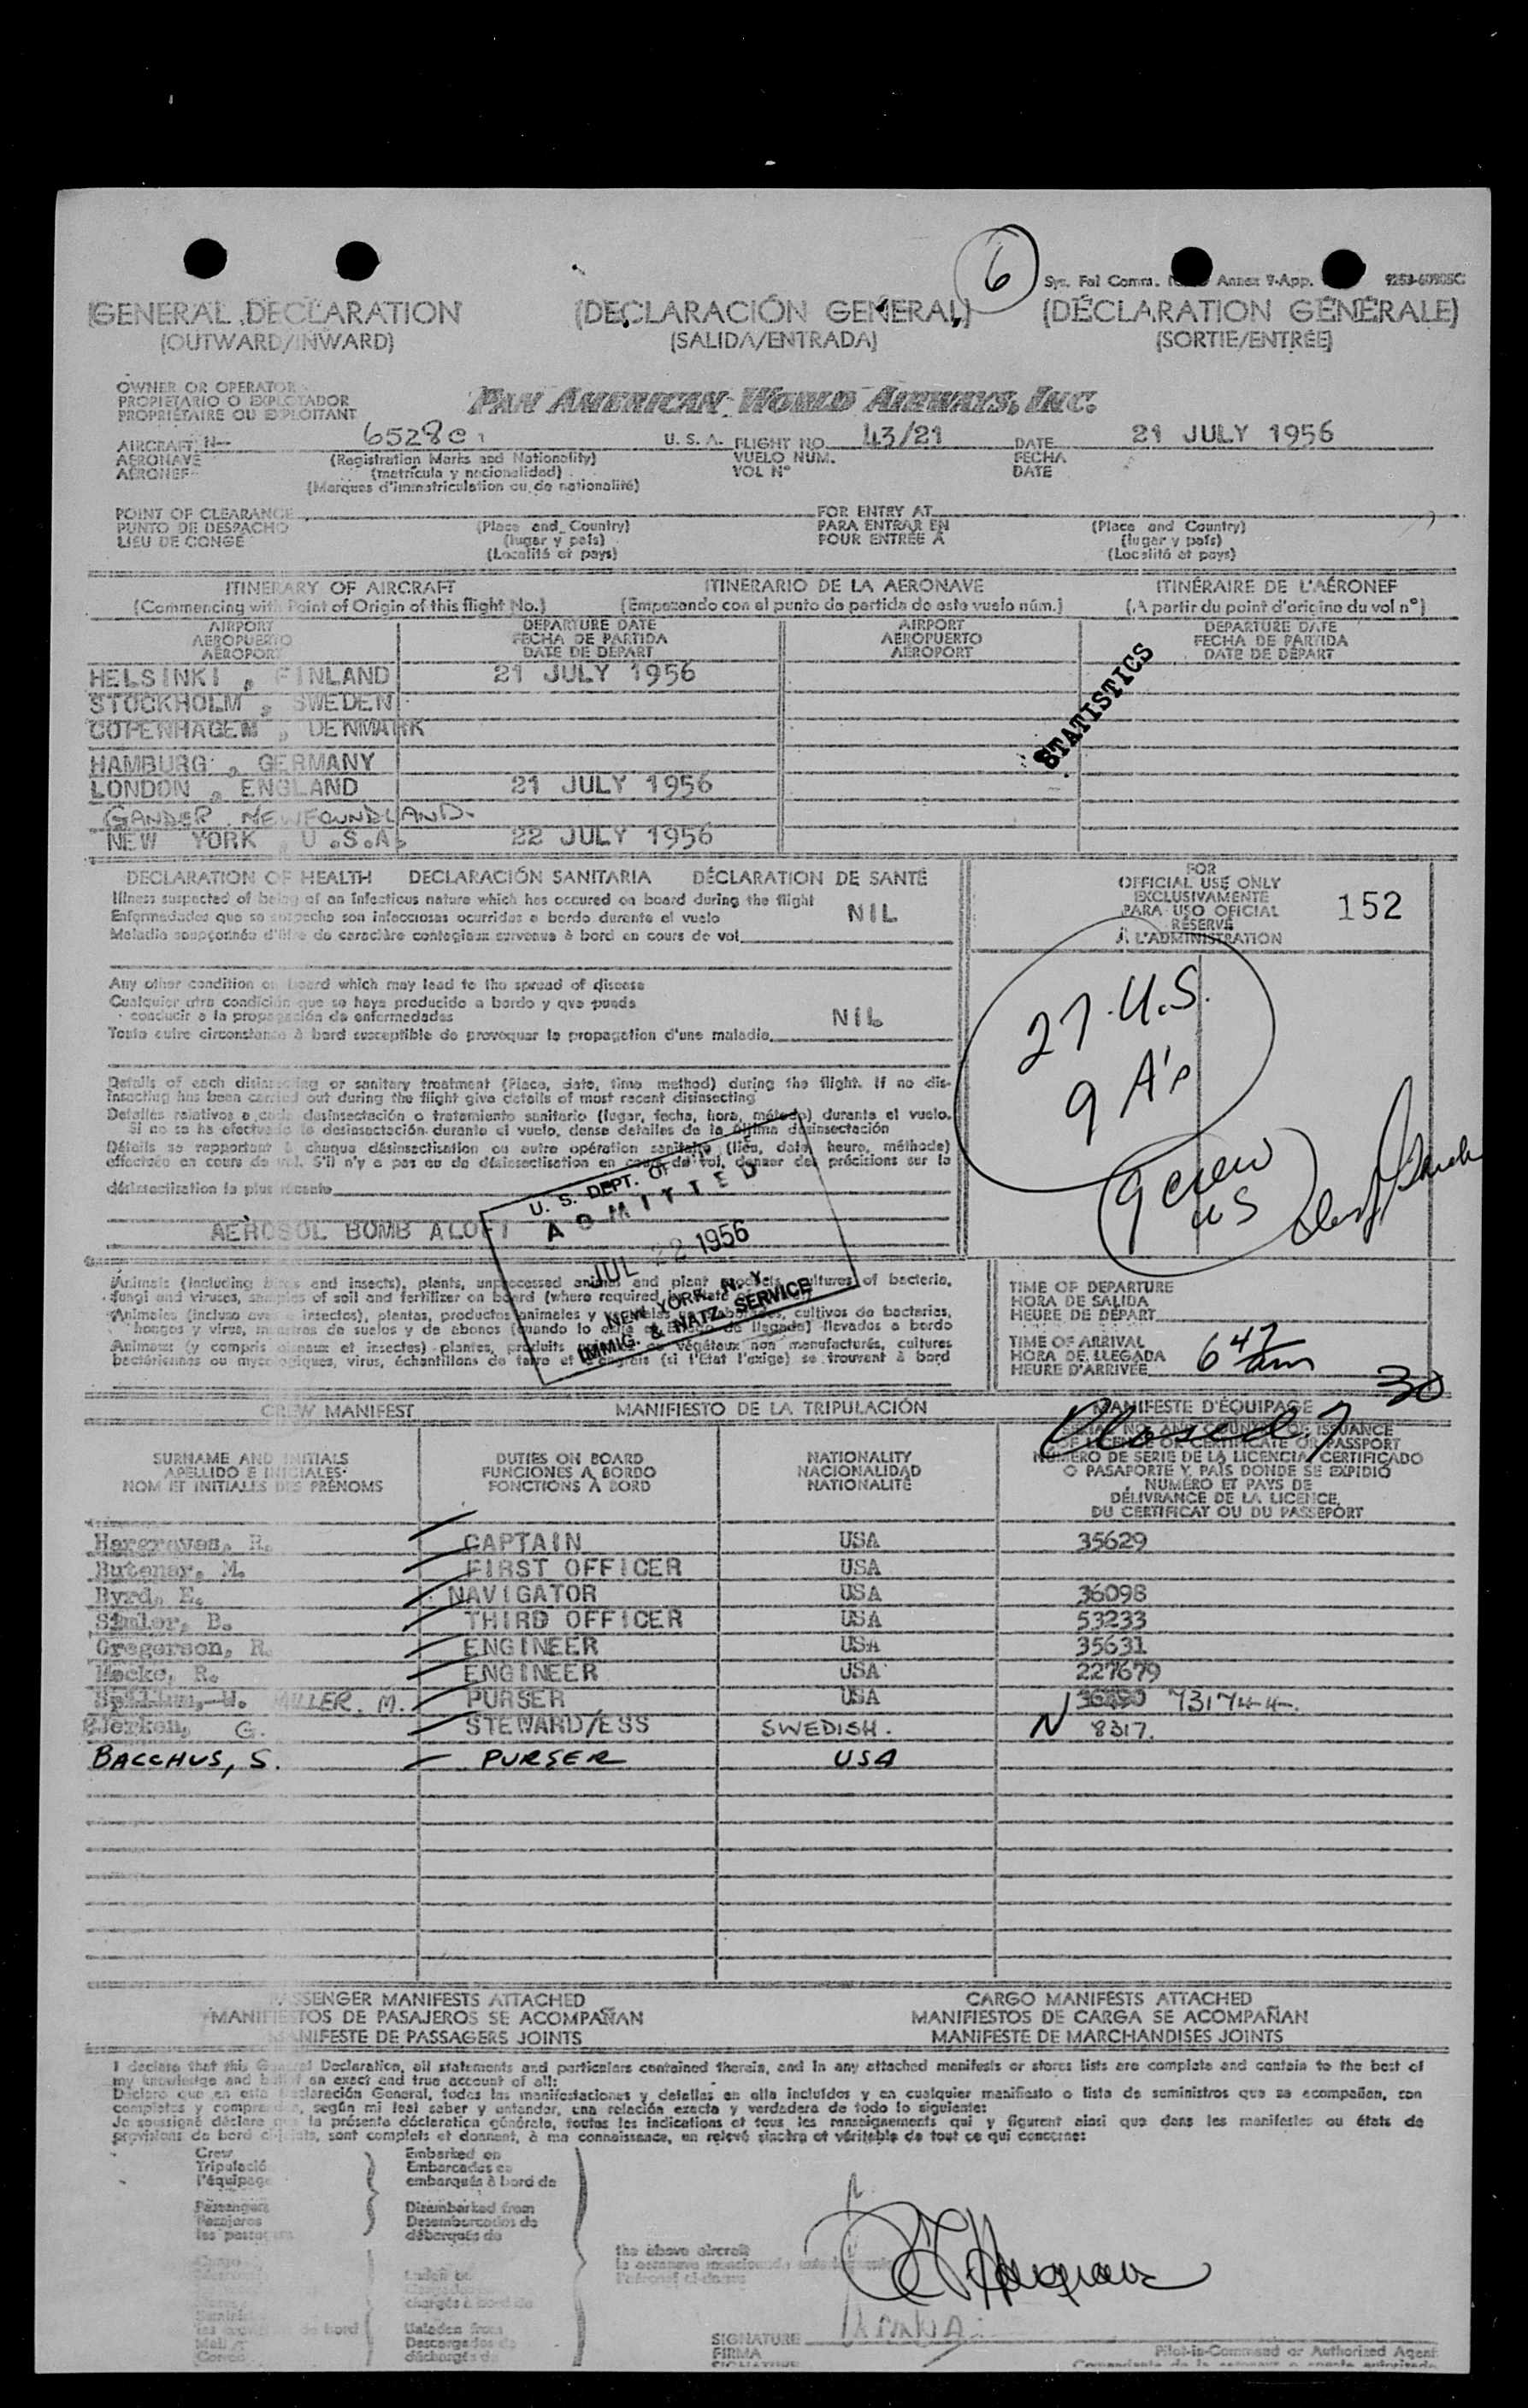 6
Sys. Fal Comm. Annex 9-App.
(GENERAL DECLARATION (DECLARACIÓN GENERAL) (DÉCLARATION GÉNÉRALE)
(OUTWARD/INWARD) (SALIDA/ENTRADA) (SORTIE/ENTRÉE)
OWNER OR OPERATOR
PROPIETARIO O EXPLOTADOR
PROPRIÉTAIRE OU EXPLOITANT
PAN AMERICAN WORLD AIRWAYS, INC.
AIRCRAFT N— 6528C U. S. A. FLIGHT NO. 43/21 DATE 21 JULY 1956
AERONAVE (Registration Marks and Nationality) VUELO NÚM. FECHA
AÉRONEF (matrícula y nacionalidad) VOL N° DATE
(Marques d'immatriculation ou de nationalité)
POINT OF CLEARANCE FOR ENTRY AT
PUNTO DE DESPACHO (Place and Country) PARA ENTRAR EN (Place and Country)
LIEU DE CONGÉ (lugar y país) POUR ENTRÉE À (lugar y país)
(Localité et pays) (Localité et pays)
ITINERARY OF AIRCRAFT ITINERARIO DE LA AERONAVE ITINÉRAIRE DE L'AÉRONEF
(Commencing with Point of Origin of this flight No.) (Empezando con el punto de partida de este vuelo núm.) (A partir du point d'origine du vol n°)
AIRPORT DEPARTURE DATE AIRPORT DEPARTURE DATE
AEROPUERTO FECHA DE PARTIDA AEROPUERTO FECHA DE PARTIDA
AÉROPORT DATE DE DÉPART AÉROPORT DATE DE DÉPART
HELSINKI, FINLAND 21 JULY 1956
STOCKHOLM, SWEDEN
COPENHAGEN, DENMARK
HAMBURG, GERMANY
LONDON, ENGLAND 21 JULY 1956
GANDER NEWFOUNDLAND.
NEW YORK, U.S.A. 22 JULY 1956
STATISTICS
DECLARATION OF HEALTH DECLARACIÓN SANITARIA DÉCLARATION DE SANTÉ
Illness suspected of being of an infectious nature which has occured on board during the flight
Enfermedades que se sospecha son infecciosas ocurridas a bordo durante el vuelo NIL
Maladie soupçonnée d'être de caractère contagieux survenue à bord en cours de vol
FOR
OFFICIAL USE ONLY
EXCLUSIVAMENTE
PARA USO OFICIAL
RÉSERVÉ
À L'ADMINISTRATION
152
Any other condition on board which may lead to the spread of disease
Cualquier otra condición que se haya producido a bordo y que pueda
conducir a la propagación de enfermedades NIL
Toute autre circonstance à bord susceptible de provoquer la propagation d'une maladie
27 U.S.
9 A's
9 crew
US
Details of each disinsecting or sanitary treatment (Place, date, time method) during the flight. If no dis-
insecting has been carried out during the flight give details of most recent disinsecting
Detalles relativos a cada desinsectación o tratamiento sanitario (lugar, fecha, hora, método) durante el vuelo.
Si no se ha efectuado la desinsectación durante el vuelo, dense detalles de la última desinsectación
Détails se rapportant à chaque désinsectisation ou autre opération sanitaire (lieu, date, heure, méthode)
effectuée en cours de vol. S'il n'y a pas eu de désinsectisation en cours de vol, donner des précisions sur la
désinsectisation la plus récente
AEROSOL BOMB ALOFT
U. S. DEPT. OF
ADMITTED
JUL 22 1956
NEW YORK, N. Y.
IMMIG. & NATZ. SERVICE
Animals (including birds and insects), plants, unprocessed animal and plant products, cultures of bacteria,
fungi and viruses, samples of soil and fertilizer on board (where required
Animales (incluso aves e insectos), plantas, productos animales y vegetales cultivos de bacterias,
hongos y virus, muestras de suelos y de abonos (cuando lo llegada) llevados a bordo
Animaux (y compris oiseaux et insectes) plantes, produits végétaux non manufacturés, cultures
bactériennes ou mycologiques, virus, échantillons de terre et d'engrais (si l'État l'exige) se trouvent à bord
TIME OF DEPARTURE
HORA DE SALIDA
HEURE DE DÉPART
TIME OF ARRIVAL
HORA DE LLEGADA 6 47 am
HEURE D'ARRIVÉE
Closed 7 30
CREW MANIFEST MANIFIESTO DE LA TRIPULACIÓN MANIFESTE D'ÉQUIPAGE
SURNAME AND INITIALS DUTIES ON BOARD NATIONALITY SERIAL NO. AND COUNTRY OF ISSUANCE
APELLIDO E INICIALES FUNCIONES A BORDO NACIONALIDAD OF LICENCE OR CERTIFICATE OR PASSPORT
NOM ET INITIALES DES PRÉNOMS FONCTIONS À BORD NATIONALITÉ NÚMERO DE SERIE DE LA LICENCIA, CERTIFICADO
O PASAPORTE Y PAÍS DONDE SE EXPIDIÓ
NUMÉRO ET PAYS DE
DÉLIVRANCE DE LA LICENCE,
DU CERTIFICAT OU DU PASSEPORT
Hargraves, R. CAPTAIN USA 35629
Butenar, M. FIRST OFFICER USA
Byrd, E. NAVIGATOR USA 36098
Simler, B. THIRD OFFICER USA 53233
Gregerson, R. ENGINEER USA 35631
Mocke, R. ENGINEER USA 227679
MILLER, M. PURSER USA 73174
Bjerken, G. STEWARD/ESS SWEDISH. N 8317.
BACCHUS, S. PURSER USA
PASSENGER MANIFESTS ATTACHED CARGO MANIFESTS ATTACHED
MANIFIESTOS DE PASAJEROS SE ACOMPAÑAN MANIFIESTOS DE CARGA SE ACOMPAÑAN
MANIFESTE DE PASSAGERS JOINTS MANIFESTE DE MARCHANDISES JOINTS
I declare that this General Declaration, all statements and particulars contained therein, and in any attached manifests or stores lists are complete and contain to the best of
my knowledge and belief an exact and true account of all:
Declaro que en esta Declaración General, todas las manifestaciones y detalles en ella incluídos y en cualquier manifiesto o lista de suministros que se acompañan, son
completos y comprenden, según mi leal saber y entender, una relación exacta y verdadera de todo lo siguiente:
Je soussigné déclare que la présente déclaration générale, toutes les indications et tous les renseignements qui y figurent ainsi que dans les manifestes ou états de
provisions de bord ci-joints, sont complets et donnent, à ma connaissance, un relevé sincère et véritable de tout ce qui concerne:
Crew Embarked on
Tripulació Embarcados en
l'équipage embarqués à bord de
Passengers Disembarked from
Pasajeros Desembarcados de
les passagers débarqués de
the above aircraft
chargés à bord de
Unladen from
Descargados de
déchargés de
SIGNATURE
FIRMA
SIGNATURE
Pilot-in-Command or Authorized Agent